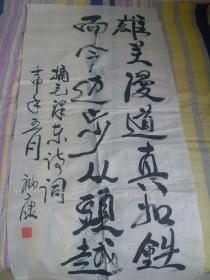 雄关漫道真如鉄
而今迈步从頭越
摘毛泽东诗词
壬申年五月